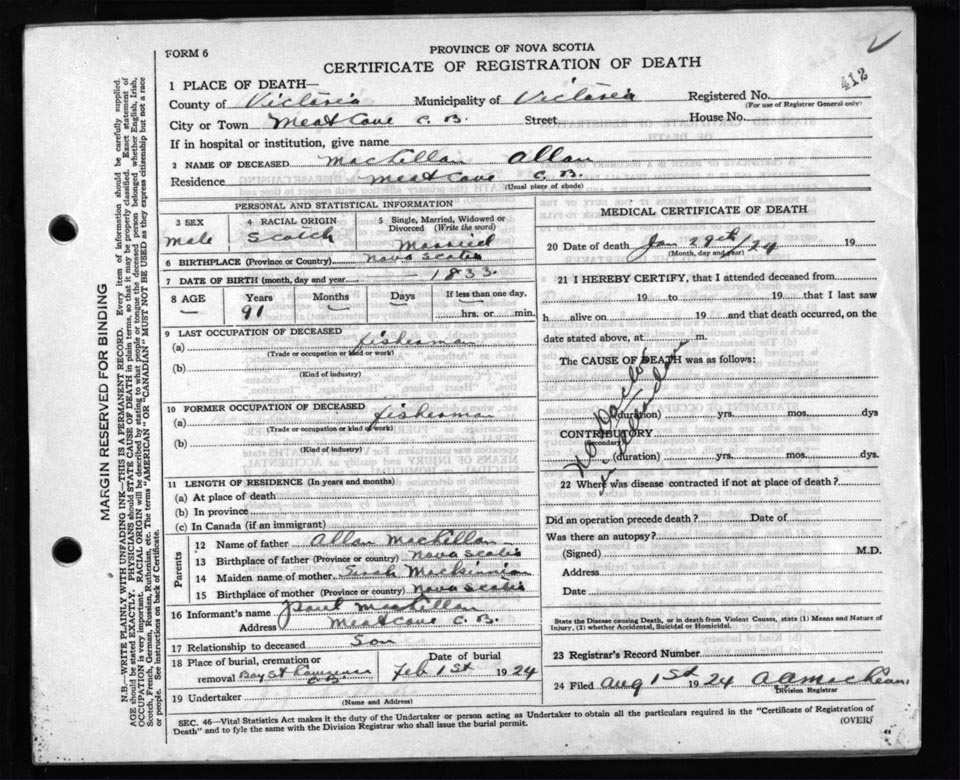 412
FORM 6
PROVINCE OF NOVA SCOTIA
CERTIFICATE OF REGISTRATION OF DEATH
1 PLACE OF DEATH—
County of Victoria Municipality of Victoria Registered No.
(For use of Registrar General only)
City or Town Meat Cove C. B. Street House No.
If in hospital or institution, give name
2 NAME OF DECEASED MacLellan Allan
Residence Meat Cove C. B.
(Usual place of abode)
PERSONAL AND STATISTICAL INFORMATION
3 SEX 4 RACIAL ORIGIN 5 Single, Married, Widowed or Divorced (Write the word)
Male Scotch Married
6 BIRTHPLACE (Province or Country) Nova Scotia
7 DATE OF BIRTH (month, day and year) 1833
8 AGE Years Months Days If less than one day,
— 91 — hrs. or min.
9 LAST OCCUPATION OF DECEASED
(a) fisherman
(Trade or occupation or kind or work)
(b)
(Kind of industry)
10 FORMER OCCUPATION OF DECEASED
(a) fisherman
(Trade or occupation or kind of work)
(b)
(Kind of industry)
11 LENGTH OF RESIDENCE (In years and months)
(a) At place of death
(b) In province
(c) In Canada (if an immigrant)
Parents
12 Name of father Allan MacLellan
13 Birthplace of father (Province or country) Nova Scotia
14 Maiden name of mother Mackinnon
15 Birthplace of mother (Province or country) Nova Scotia
16 Informant's name Paul McLellan
Address Meat Cove C. B.
17 Relationship to deceased Son
18 Place of burial, cremation or removal Bay St Lawrence C.B.
Date of burial Feb 1st 1924
19 Undertaker
(Name and Address)
MEDICAL CERTIFICATE OF DEATH
20 Date of death Jan 29th/24 19
(Month, day and year)
21 I HEREBY CERTIFY, that I attended deceased from
19 to 19 that I last saw
h alive on 19 and that death occurred, on the
date stated above, at m.
The CAUSE OF DEATH was as follows:
No Doctor
in attendance
(duration) yrs. mos. dys
CONTRIBUTORY
(Secondary)
(duration) yrs. mos. dys.
22 Where was disease contracted if not at place of death?
Did an operation precede death? Date of
Was there an autopsy?
(Signed) M.D.
Address
Date
State the Disease causing Death, or in death from Violent Causes, state (1) Means and Nature of
Injury, (2) whether Accidental, Suicidal or Homicidal.
23 Registrar's Record Number
24 Filed Aug 1st 1924 A A MacLean
Division Registrar
SEC. 46—Vital Statistics Act makes it the duty of the Undertaker or person acting as Undertaker to obtain all the particulars required in the "Certificate of Registration of
Death" and to fyle the same with the Division Registrar who shall issue the burial permit.
(OVER)
MARGIN RESERVED FOR BINDING
N.B.—WRITE PLAINLY WITH UNFADING INK—THIS IS A PERMANENT RECORD. Every item of information should be carefully supplied.
AGE should be stated EXACTLY. PHYSICIANS should STATE CAUSE OF DEATH in plain terms, so that it may be properly classified. Exact statement of
OCCUPATION is very important. RACIAL ORIGIN will be described by stating to what people or tongue the deceased person belonged whether English, Irish,
Scotch, French, German, Russian, Ruthenian, etc. The terms "AMERICAN" OR "CANADIAN" MUST NOT BE USED as they express citizenship but not a race
or people. See instructions on back of Certificate.